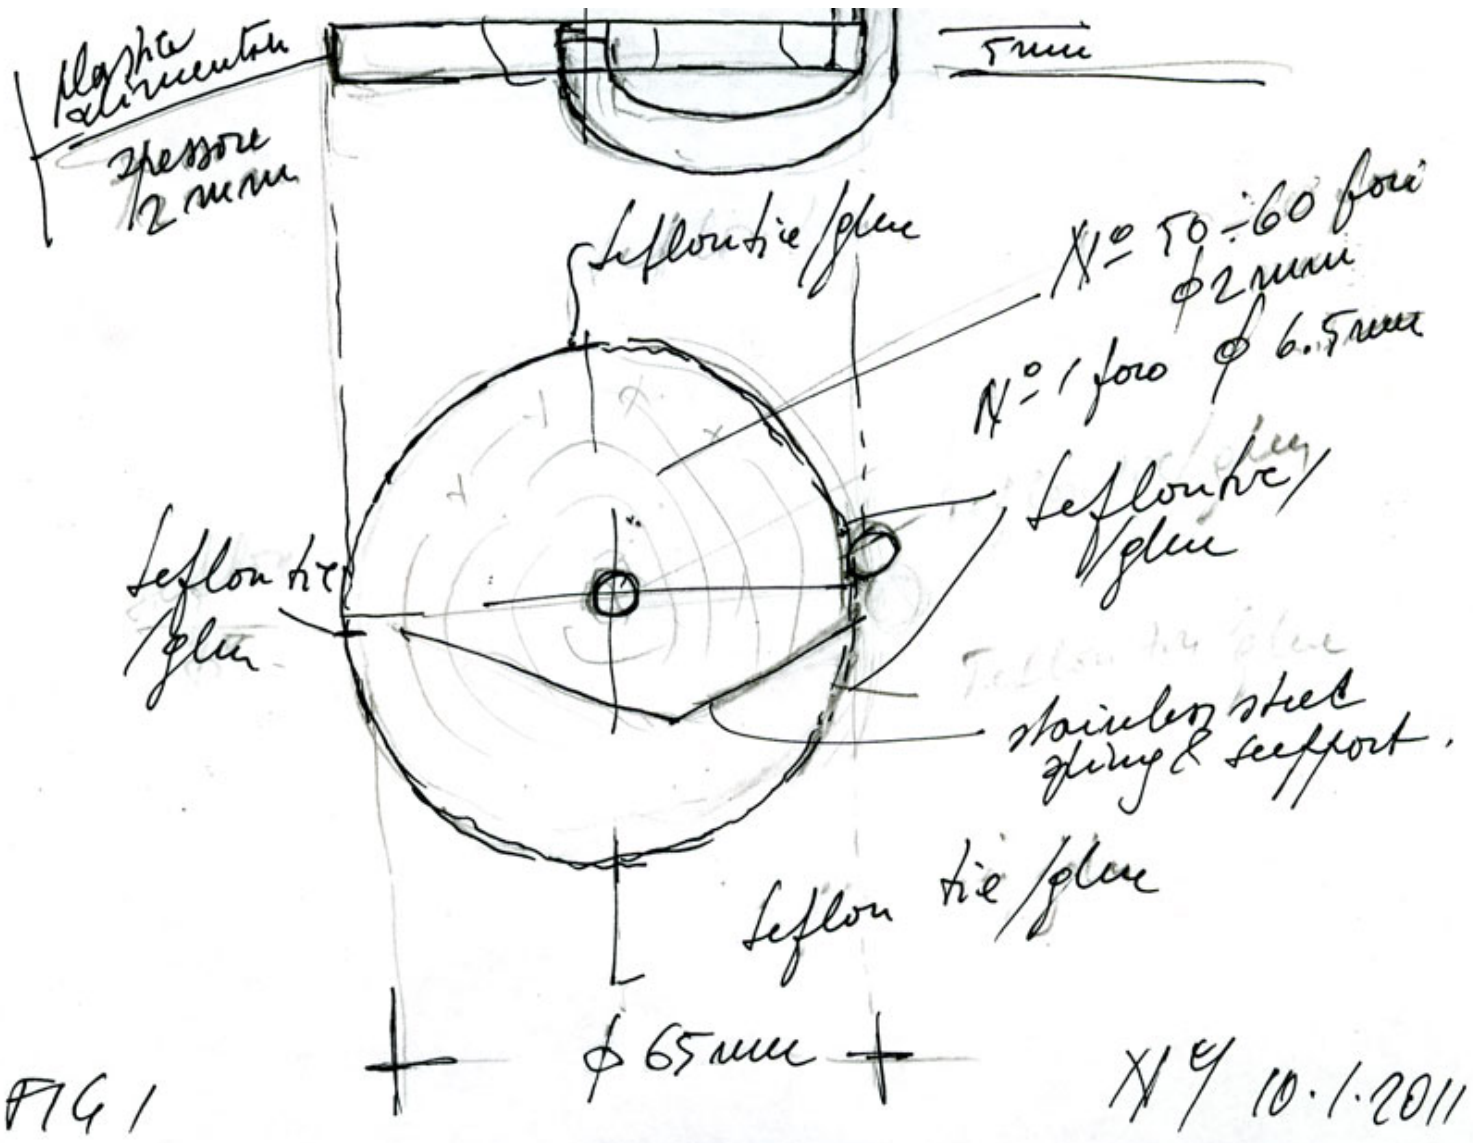 plastica
alimentare
spessore
2 mm
5 mm
teflon tie/glue
N° 50÷60 fori
ϕ2 mm
N° 1 foro ϕ 6.5 mm
teflon tie/
glue
teflon tie
/glue
Teflon tie glue
stainless steel
spring & support.
teflon tie/glue
ϕ 65 mm
FIG 1
10.1.2011